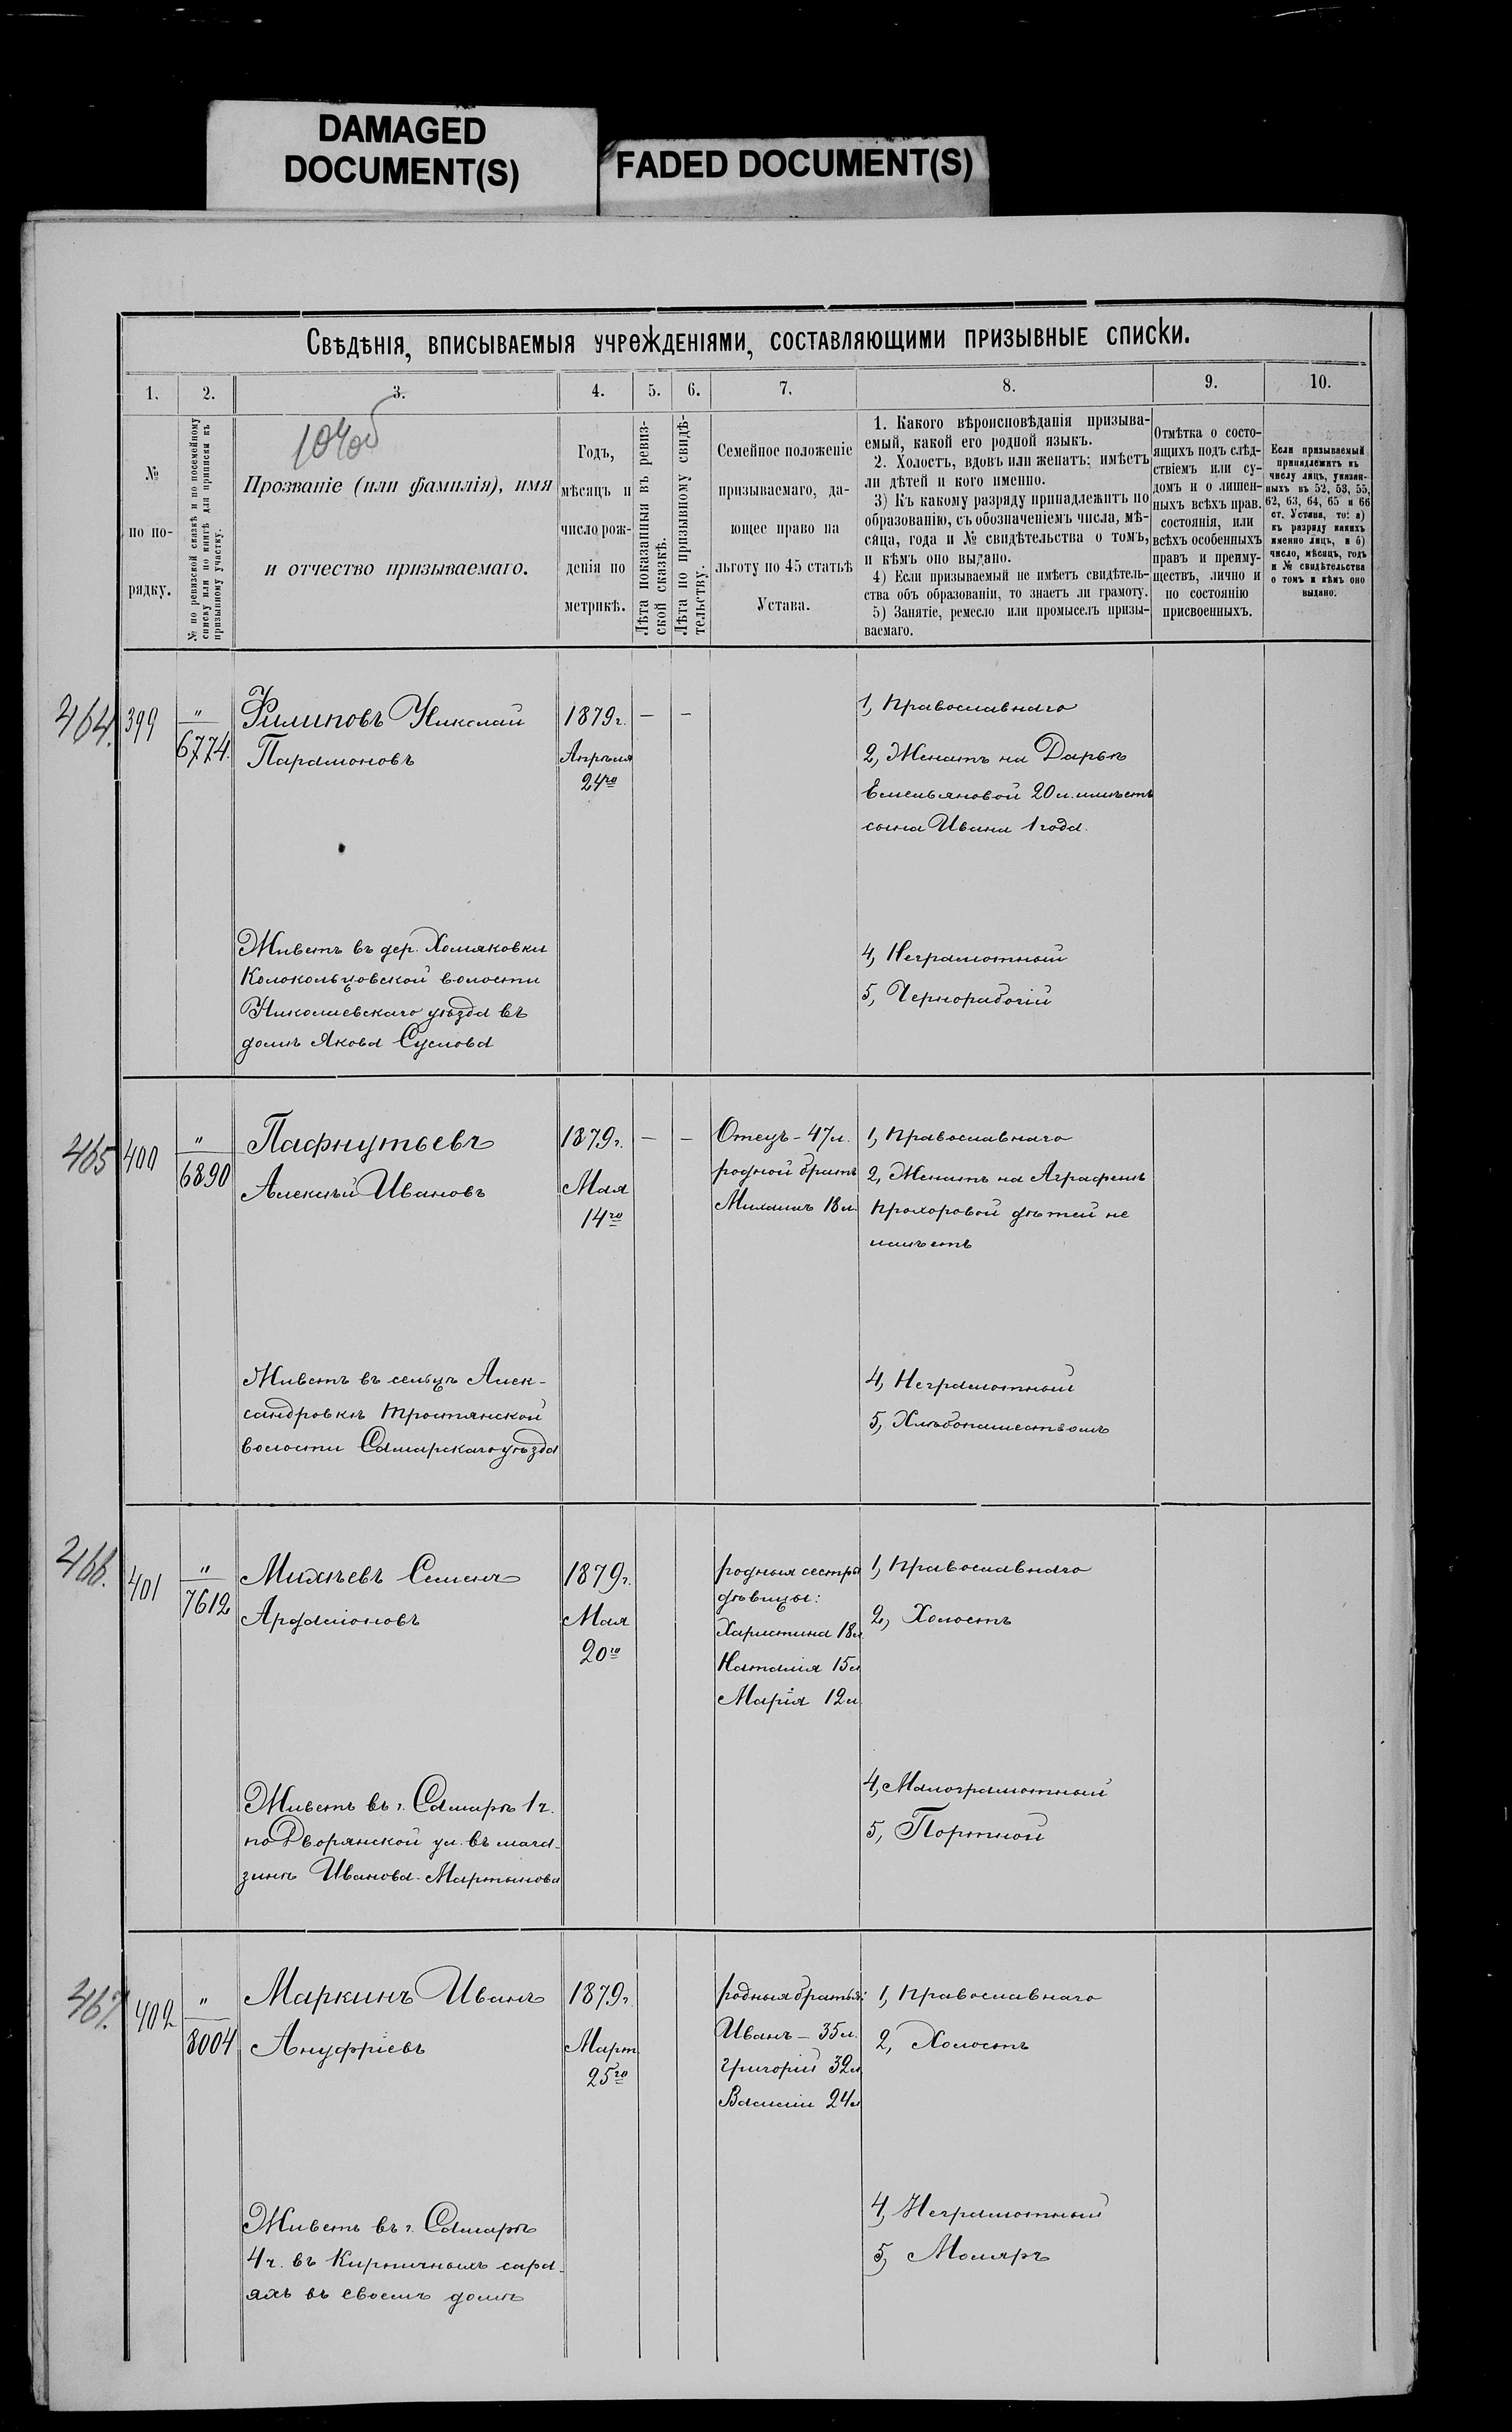 DAMAGED
DOCUMENT(S)
FADED DOCUMENT(S)
Свѣдѣнія, вписываемыя учрежденіями, составляющими призывные списки.
1.
2.
3.
4.
5.
6.
7.
8.
9.
10.
№
по по-
рядку.
№ по ревизской сказкѣ и по посемейному
списку или по книгѣ для приписки къ
призывному участку.
Прозваніе (или фамилія), имя
и отчество призываемаго.
Годъ,
мѣсяцъ и
число рож-
денія по
метрикѣ.
Лѣта показанныя въ ревиз-
ской сказкѣ.
Лѣта по призывному свидѣ-
тельству.
Семейное положеніе
призываемаго, да-
ющее право на
льготу по 45 статьѣ
Устава.
1. Какого вѣроисповѣданія призыва-
емый, какой его родной языкъ.
2. Холостъ, вдовъ или женатъ; имѣетъ
ли дѣтей и кого именно.
3) Къ какому разряду принадлежитъ по
образованію, съ обозначеніемъ числа, мѣ-
сяца, года и № свидѣтельства о томъ,
и кѣмъ оно выдано.
4) Если призываемый не имѣетъ свидѣтель-
ства объ образованіи, то знаетъ ли грамоту.
5) Занятіе, ремесло или промыселъ призы-
ваемаго.
Отмѣтка о состо-
ящихъ подъ слѣд-
ствіемъ или су-
домъ и о лишен-
ныхъ всѣхъ прав.
состоянія, или
всѣхъ особенныхъ
правъ и преиму-
ществъ, лично и
по состоянію
присвоенныхъ.
Если призываемый
принадлежитъ къ
числу лицъ, указан-
ныхъ въ 52, 53, 55,
62, 63, 64, 65 и 66
ст. Устава, то: а)
къ разряду какихъ
именно лицъ, и б)
число, мѣсяцъ, годъ
и № свидѣтельства
о томъ и кѣмъ оно
выдано.
464.
399
"
6774.
Филиповъ Николай
Парамоновъ
1879г.
Апрѣля
24го
—
—
1, Православнаго
2, Женатъ на Дарьѣ
Емельяновой 20 л. имѣетъ
сына Ивана 1 года.
Живетъ въ дер. Хомяковки
Колокольцовской волости
Николаевскаго уѣзда въ
домѣ Якова Суслова
4, Неграмотный
5, Чернорабочій
465
400
"
6890
Пафнутьевъ
Алексѣй Ивановъ
1879г.
Мая
14го
—
—
Отецъ - 47 л.
родной братъ
Михаилъ 18 л.
1, Православнаго
2, Женатъ на Аграфенѣ
Прохоровой дѣтей не
имѣетъ
Живетъ въ сельцѣ Алек-
сандровкѣ Тростянской
волости Самарскаго уѣзда
4, Неграмотный
5, Хлѣбопашествомъ
466.
401
"
7612
Михѣевъ Семенъ
Арфаліоновъ
1879г.
Мая
20го
родныя сестры
дѣвицы:
Харистина 18 л
Наталія 15 л
Марія 12 л.
1, Православнаго
2, Холостъ
Живетъ въ г. Самарѣ 1 ч.
по Дворянской ул. въ мага-
зинѣ Иванова-Мартынова
4, Малограмотный
5, Портной
467.
402
"
8004
Маркинъ Иванъ
Ануфріевъ
1879г.
Март.
25го
родныя братья:
Иванъ - 35 л.
Григорій 32 л
Василій 24 л
1, Православнаго
2, Холостъ
Живетъ въ г. Самарѣ
4 ч. въ Кирпичныхъ сара-
яхъ въ своемъ домѣ
4, Неграмотный
5, Маляръ